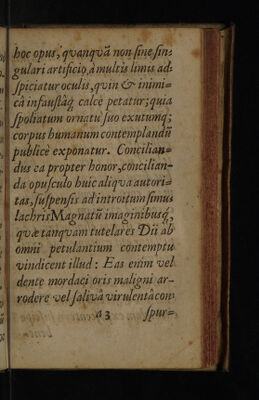 hoc opus, quanquã non sine sin=
gulari artificio, à multis limis ad=
spiciatur oculis, quin & inimi=
câ infaustâq́ calce petatur; quia
spoliatum ornatu suo exutumq́;
corpus humanum contemplandũ
publicè exponatur. Concilian=
dus ea propter honor, concilian-
da opusculo huic aliqua autori=
tas, suspensis ad introitum simu=
lachris Magnatũ imaginibusq́,
quæ tanquam tutelares Dii ab
omni petulantium contemptu
vindicent illud: Eas enim vel
dente mordaci oris maligni ar-
rodere vel salivâ virulentâ com
a 3 spur=